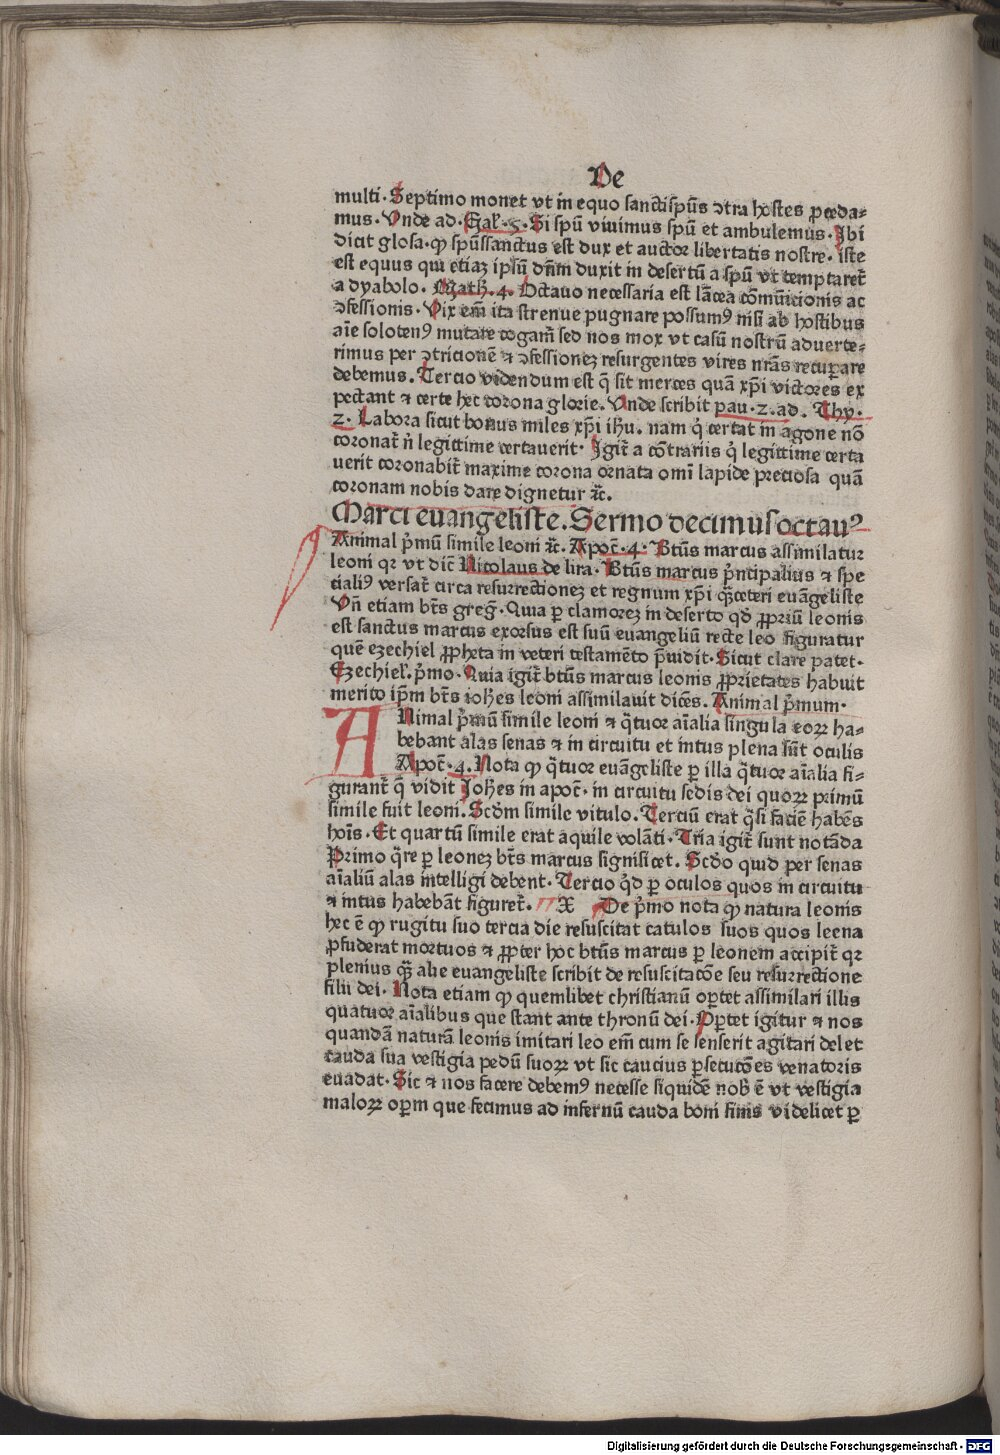 De
multi· Septimo monet vt in equo sanctispūs ↄtra hostes proceda-
mus· Vnde ad· Gal· 5· Si spū viuimus spū et ambulemus· Ibi
dicit glosa· ꝙ spūssanctus est dux et auctor libertatis nostre· iste
est equus qui etiaz ipsū dn̄m duxit in desertū a spū vt temptaret̄
a dyabolo· Math· 4· Octauo necessaria est lācea cōmūicionis ac
ↄfessionis· Vix em̄ ita strenue pugnare possumꝰ nisi ab hostibus
aīe solotenꝰ mutare cogam̄ sed nos mox vt casū nostrū aduerte-
rimus per ↄtricionē ⁊ ↄfessionez resurgentes vires nr̄as recuꝑare
debemus. Tercio videndum est q̄ sit merces quā xp̄i victores ex
pectant ⁊ certe hec corona glorie. Vnde scribit pau· 2· ad. Thy·
2· Labora sicut bonus miles xp̄i ih̄u. nam q̇ certat in agone nō
coronat̄ n̄ legittime certauerit· Igit̄ a cōtrariis q̇ legittime certa
uerit coronabit̄ maxime corona ornata omī lapide preciosa quā
coronam nobis dare dignetur ⁊c̄.
Marci euangeliste. Sermo decimusoctauꝰ
Animal p̄mū simile leoni ⁊c̄. Apoc̄· 4· Btūs marcus assimilatur
leoni qꝛ vt dic̄ Nicolaus de lira· Btūs marcus p̄ncipalius ⁊ spe
cialiꝰ versat̄ circa resurrectionez et regnum xp̄i q̄ȝceteri euāgeliste
Vn̄ etiam bt̄s greḡ· Quia ꝑ clamorez in deserto qd̄ ꝓpriū leonis
est sanctus marcus exorsus est suū euangeliū recte leo figuratur
quē ezechiel ꝓpheta in veteri testamēto p̄uidit· Sicut clare patet·
Ezechiel̄. p̄mo· Quia igit̄ btūs marcus leonis ꝓprietates habuit
merito ip̄m bt̄s ioh̄es leoni assimilauit dicēs. Animal p̄mum·
ANimal p̄mū simile leoni ⁊ q̄tuor aīalia singula eoꝝ ha-
bebant alas senas ⁊ in circuitu et intus plena sūt oculis
Apoc̄· 4. Nota ꝙ q̄tuor euāgeliste ꝑ illa q̄tuor aīalia fi-
gurant̄ q̄ vidit Joh̄es in apoc̄· in circuitu sedis dei quoꝝ primū
simile fuit leoni. Scd̄m simile vitulo. Terciū erat q̄si faciē habēs
hoīs· Et quartū simile erat aquile volāti· Tria igit̄ sunt notāda
Primo q̄re ꝑ leonez bt̄s marcus significet. Scd̄o quid per senas
aīaliū alas intelligi debent· Tercio q̇d ꝑ oculos quos in circuitu
⁊ intus habebāt figuret̄. X De p̄mo nota ꝙ natura leonis
hec ē ꝙ rugitu suo tercia die resuscitat catulos suos quos leena
ꝓfuderat mortuos ⁊ ꝓpter hoc btūs marcus ꝑ leonem accipit̄ qꝛ
plenius q̄ȝ alie euangeliste scribit de resuscitacōe seu resurrectione
filii dei· Nota etiam ꝙ quemlibet christianū oꝑtet assimilari illis
quatuor aīalibus que stant ante thronū dei· Oꝑtet igitur ⁊ nos
quandā naturā leonis imitari leo em̄ cum se senserit agitari delet
cauda sua vestigia pedū suoꝝ vt sic caucius ꝑsecucōes venatoris
euadat· Sic ⁊ nos facere debemꝰ necesse siquidē nob̄ ē vt vestigia
maloꝝ oꝑm que fecimus ad infernū cauda boni finis videlicet ꝑ
Digitalisierung gefördert durch die Deutsche Forschungsgemeinschaft · DFG